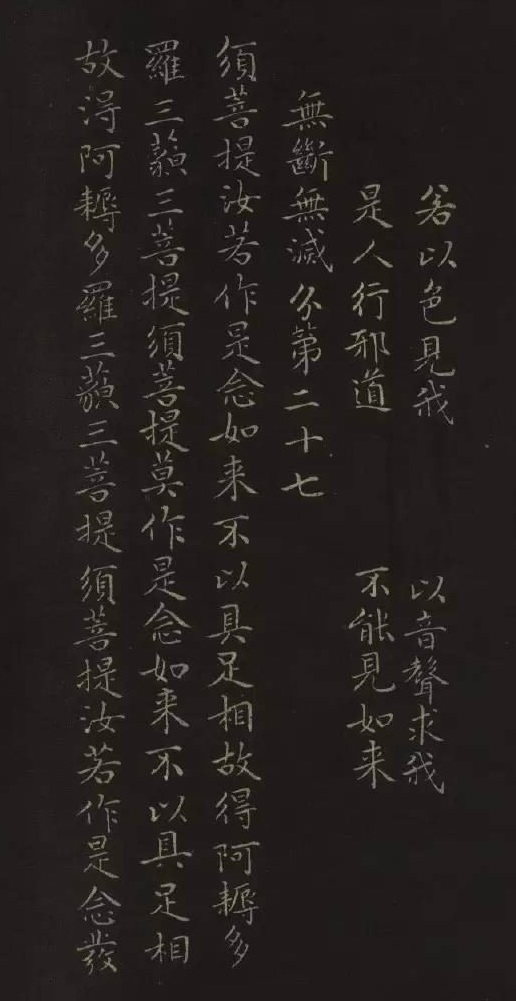 若以色見我　以音聲求我
是人行邪道　不能見如来
無斷無滅分第二十七
須菩提汝若作是念如来不以具足相故得阿耨多
羅三藐三菩提須菩提莫作是念如来不以具足相
故得阿耨多羅三藐三菩提須菩提汝若作是念發